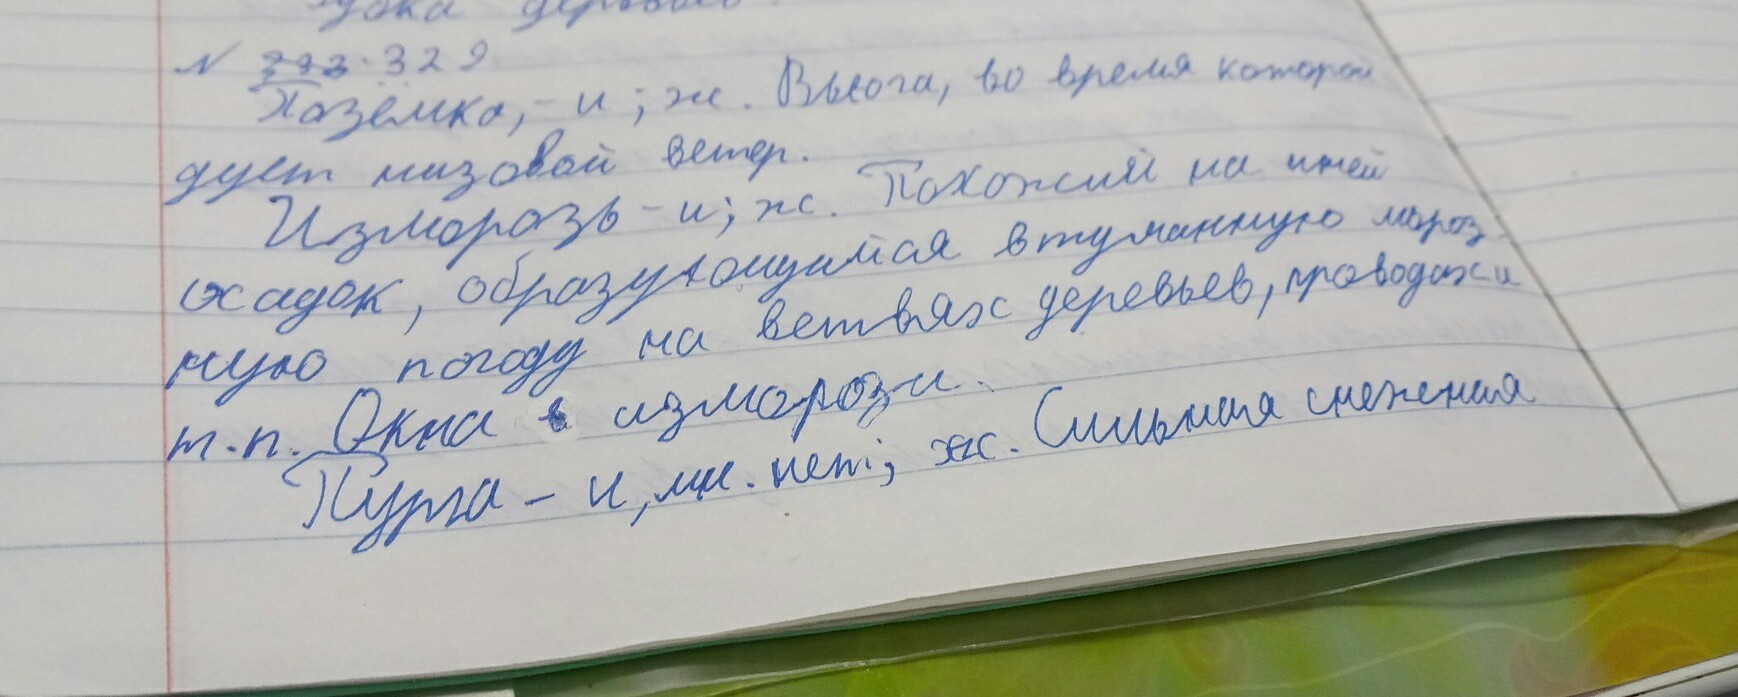 № 329
Позёмка, -и; ж. Вьюга, во время которой
дует низовой ветер.
Изморозь -и; ж. Похожий на иней
осадок, образующийся в туманную мороз
ную погоду на ветвях деревьев, проводах и
т.п. Окна в изморози.
Пурга - и, мн. нет; ж. Сильная снежная